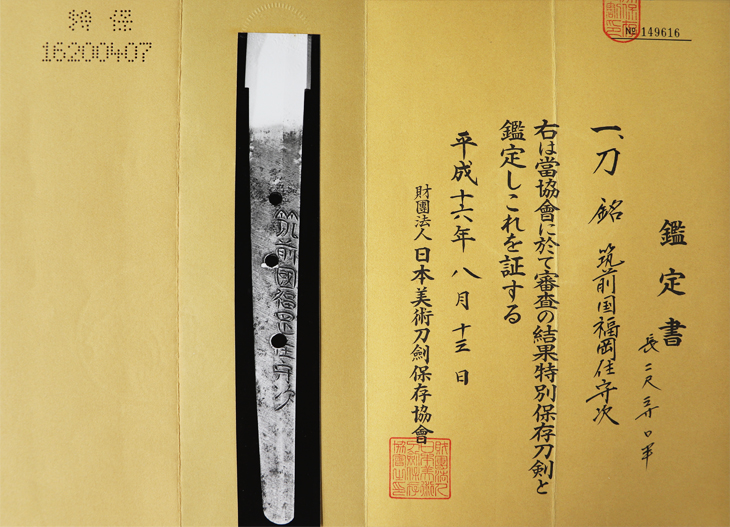 特保
16200407
筑前國福岡住守次
№ 149616
鑑定書
長二尺三寸〇半
一、刀 銘 筑前国福岡住守次
右は當協會に於て審査の結果特別保存刀剣と
鑑定しこれを証する
平成十六年八月十三日
財團法人 日本美術刀劍保存協會